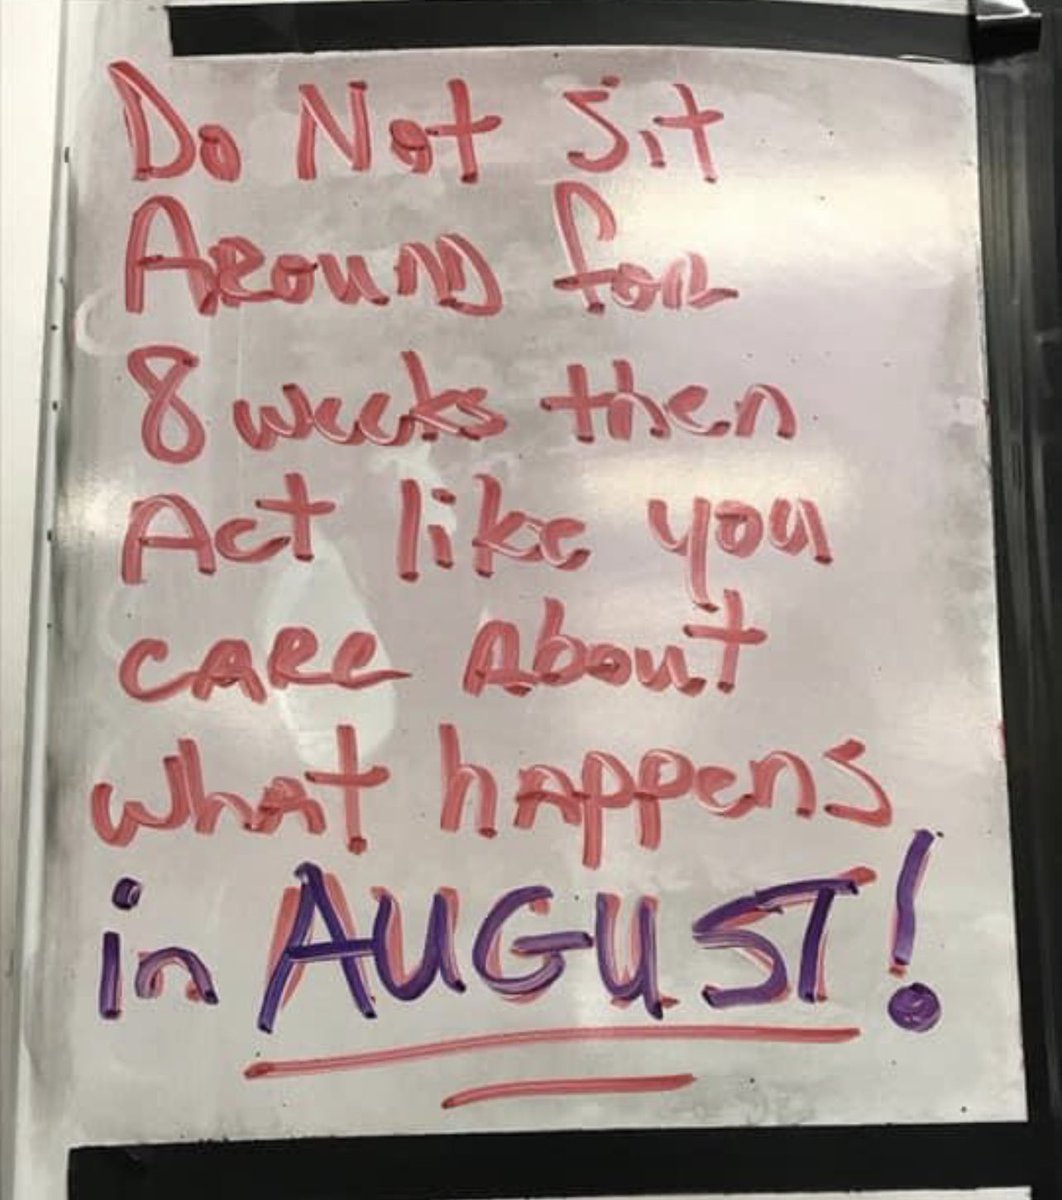 Do Not Sit
Around for
8 weeks then
Act like you
CARe About
what hAppens
in AUGUST!